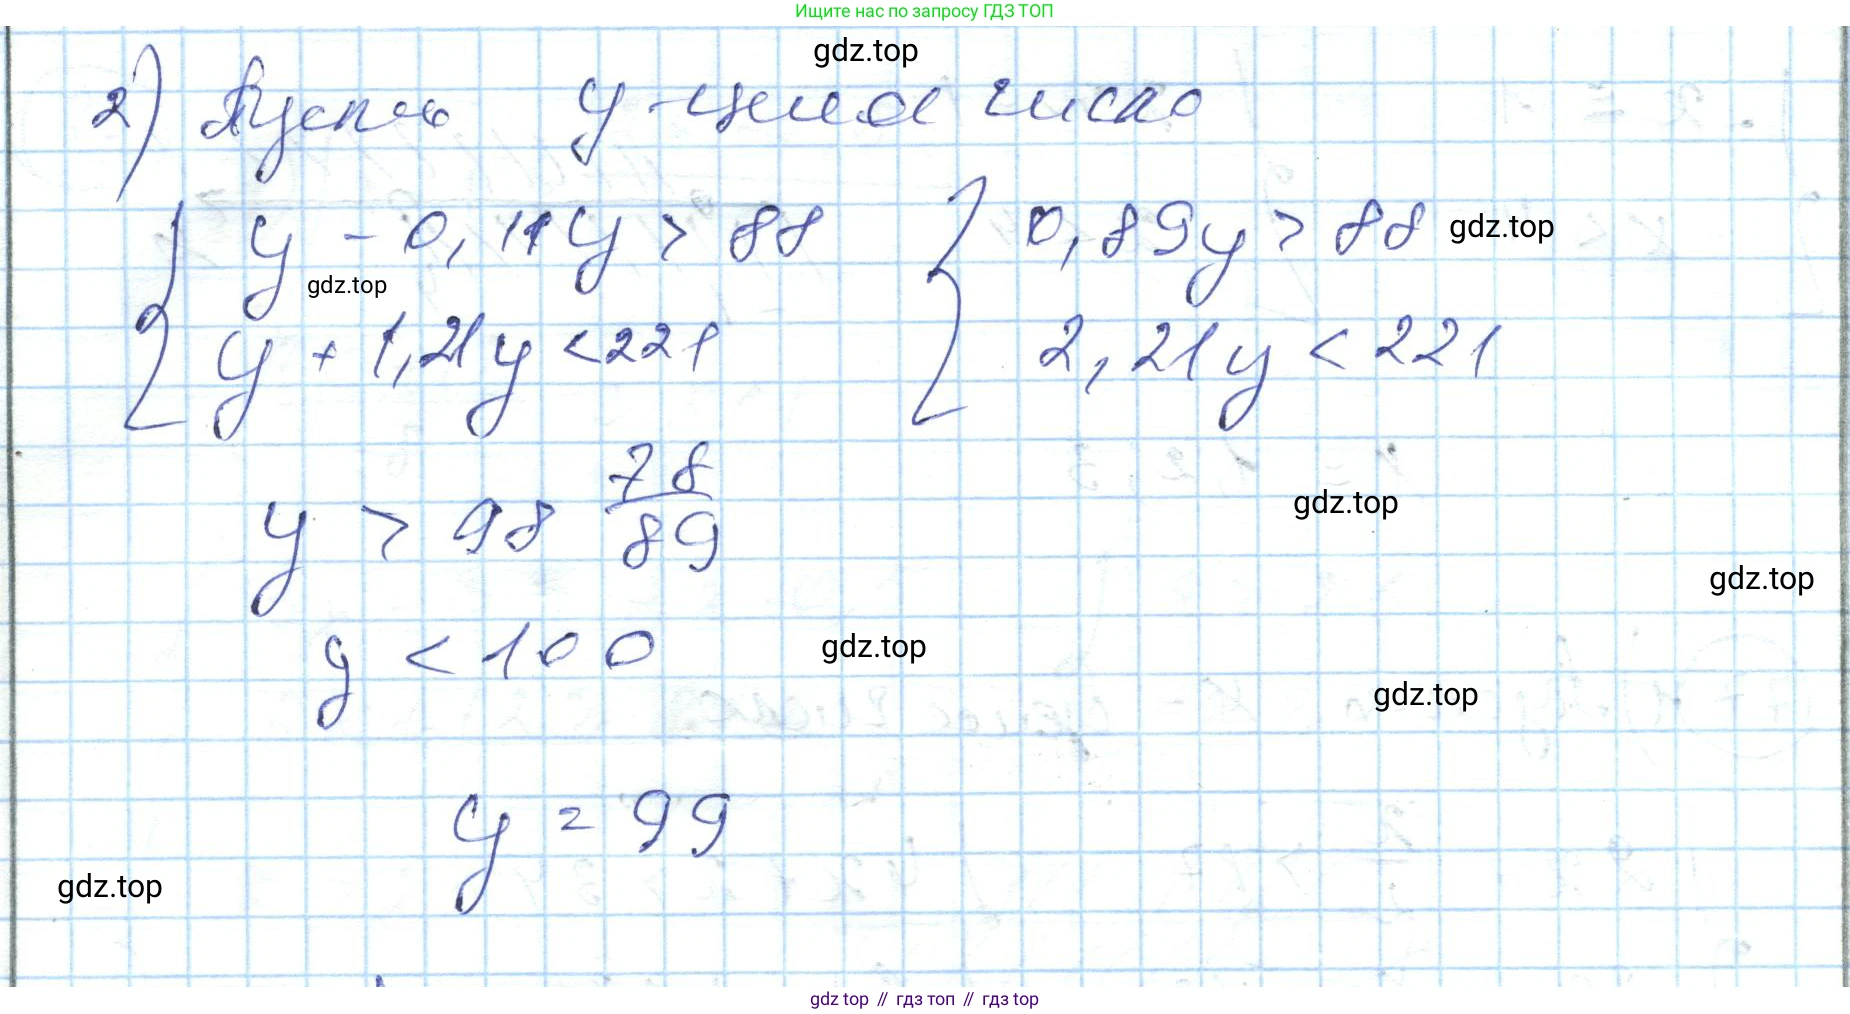 Ищите нас по запросу ГДЗ ТОП
gdz.top
2) Пусть y - целое число
{ y - 0,11y > 88 { 0,89y > 88 gdz.top
gdz.top
y + 1,21y < 221 2,21y < 221
y > 98 78/89
gdz.top
gdz.top
y < 100 gdz.top
gdz.top
y = 99
gdz.top
gdz top // гдз топ // гдз top